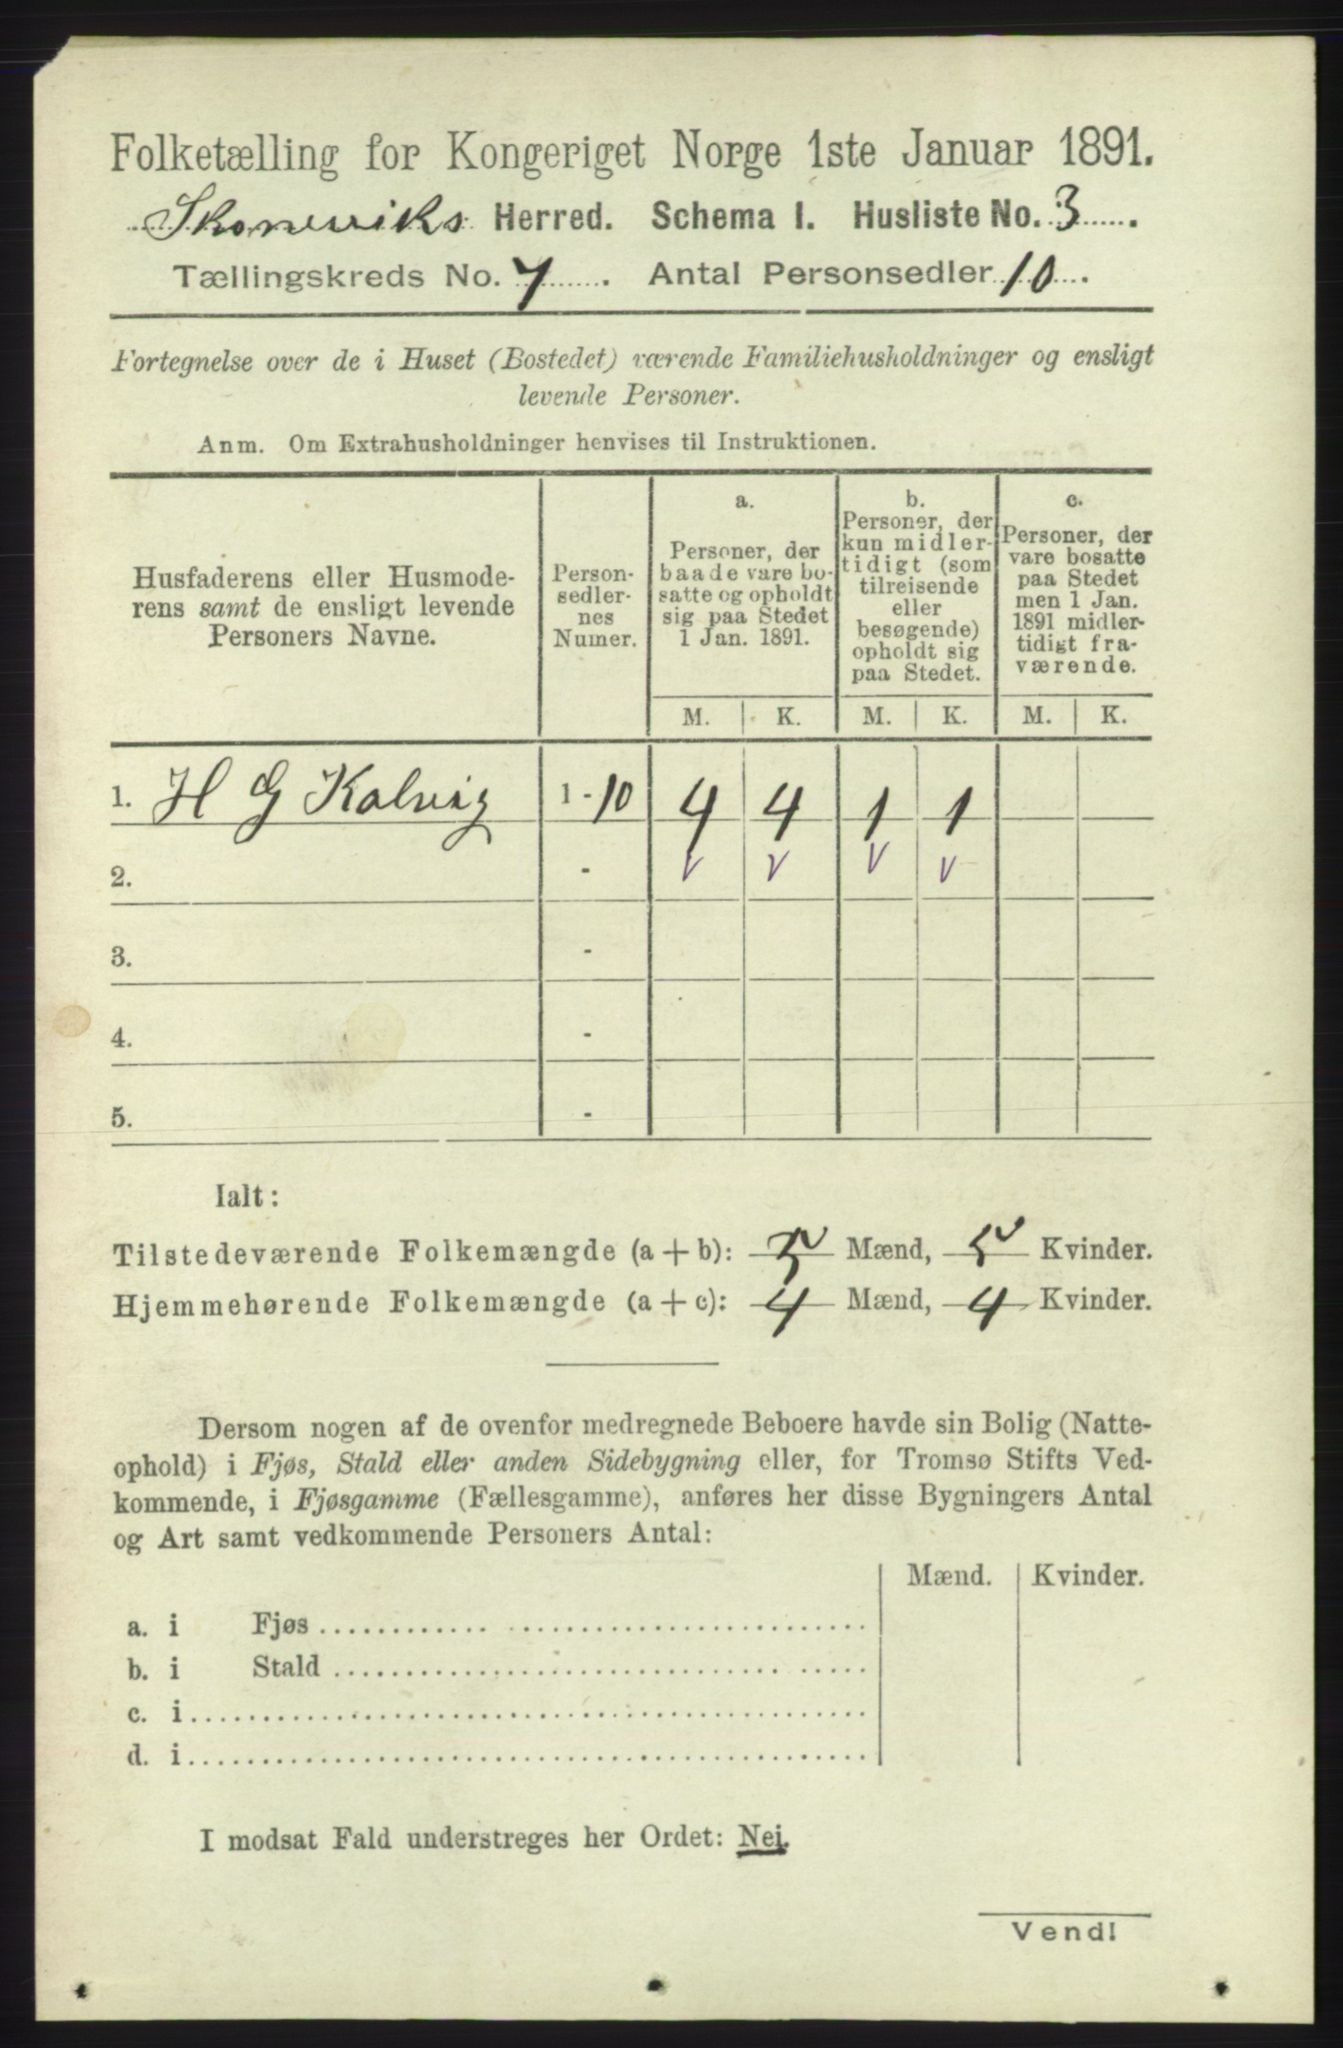 Folketælling for Kongeriget Norge 1ste Januar 1891.
Skoneviks Herred. Schema I. Husliste No. 3.
Tællingskreds No. 7. Antal Personsedler 10.
Fortegnelse over de i Huset (Bostedet) værende Familiehusholdninger og ensligt
levende Personer.
Anm. Om Extrahusholdninger henvises til Instruktionen.
Husfaderens eller Husmode-
rens samt de ensligt levende
Personers Navne.
Person-
sedler-
nes
Numer.
a.
Personer, der
baade vare bo-
satte og opholdt
sig paa Stedet
1 Jan. 1891.
b.
Personer, der
kun midler-
tidigt (som
tilreisende
eller
besøgende)
opholdt sig
paa Stedet.
c.
Personer, der
vare bosatte
paa Stedet
men 1 Jan.
1891 midler-
tidigt fra-
værende.
M. K. M. K. M. K.
1. H G Kalvig 1 - 10 4 4 1 1
2. - v v v v
3. -
4. -
5. -
Ialt:
Tilstedeværende Folkemængde (a + b): 5 Mænd, 5 Kvinder.
Hjemmehørende Folkemængde (a + c): 4 Mænd, 4 Kvinder.
Dersom nogen af de ovenfor medregnede Beboere havde sin Bolig (Natte-
ophold) i Fjøs, Stald eller anden Sidebygning eller, for Tromsø Stifts Ved-
kommende, i Fjøsgamme (Fællesgamme), anføres her disse Bygningers Antal
og Art samt vedkommende Personers Antal:
Mænd. Kvinder.
a. i Fjøs
b. i Stald
c. i
d. i
I modsat Fald understreges her Ordet: Nei.
Vend!